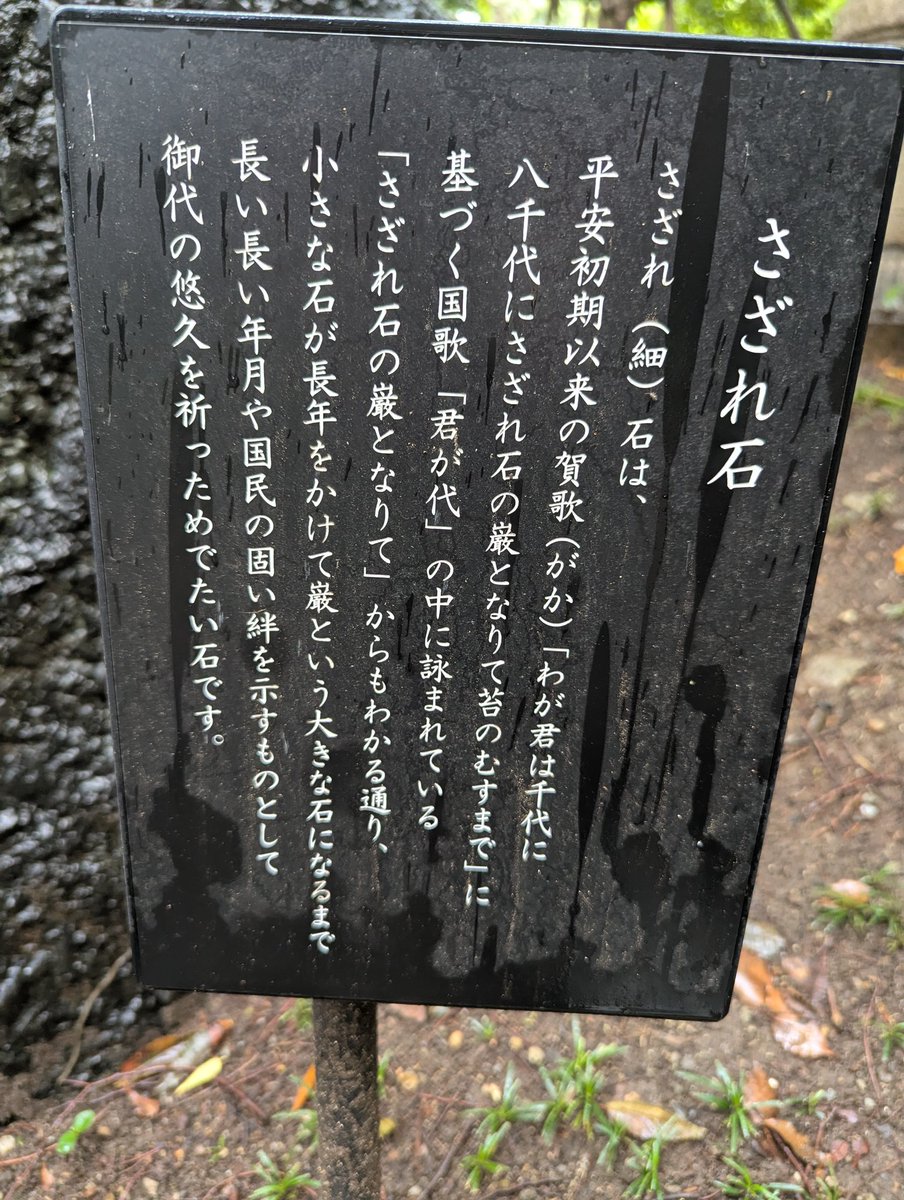 さざれ石
さざれ（細）石は、
平安初期以来の賀歌（がか）「わが君は千代に
八千代にさざれ石の巌となりて苔のむすまで」に
基づく国歌「君が代」の中に詠まれている
「さざれ石の巌となりて」からもわかる通り、
小さな石が長年をかけて巌という大きな石になるまで
長い長い年月や国民の固い絆を示すものとして
御代の悠久を祈っためでたい石です。